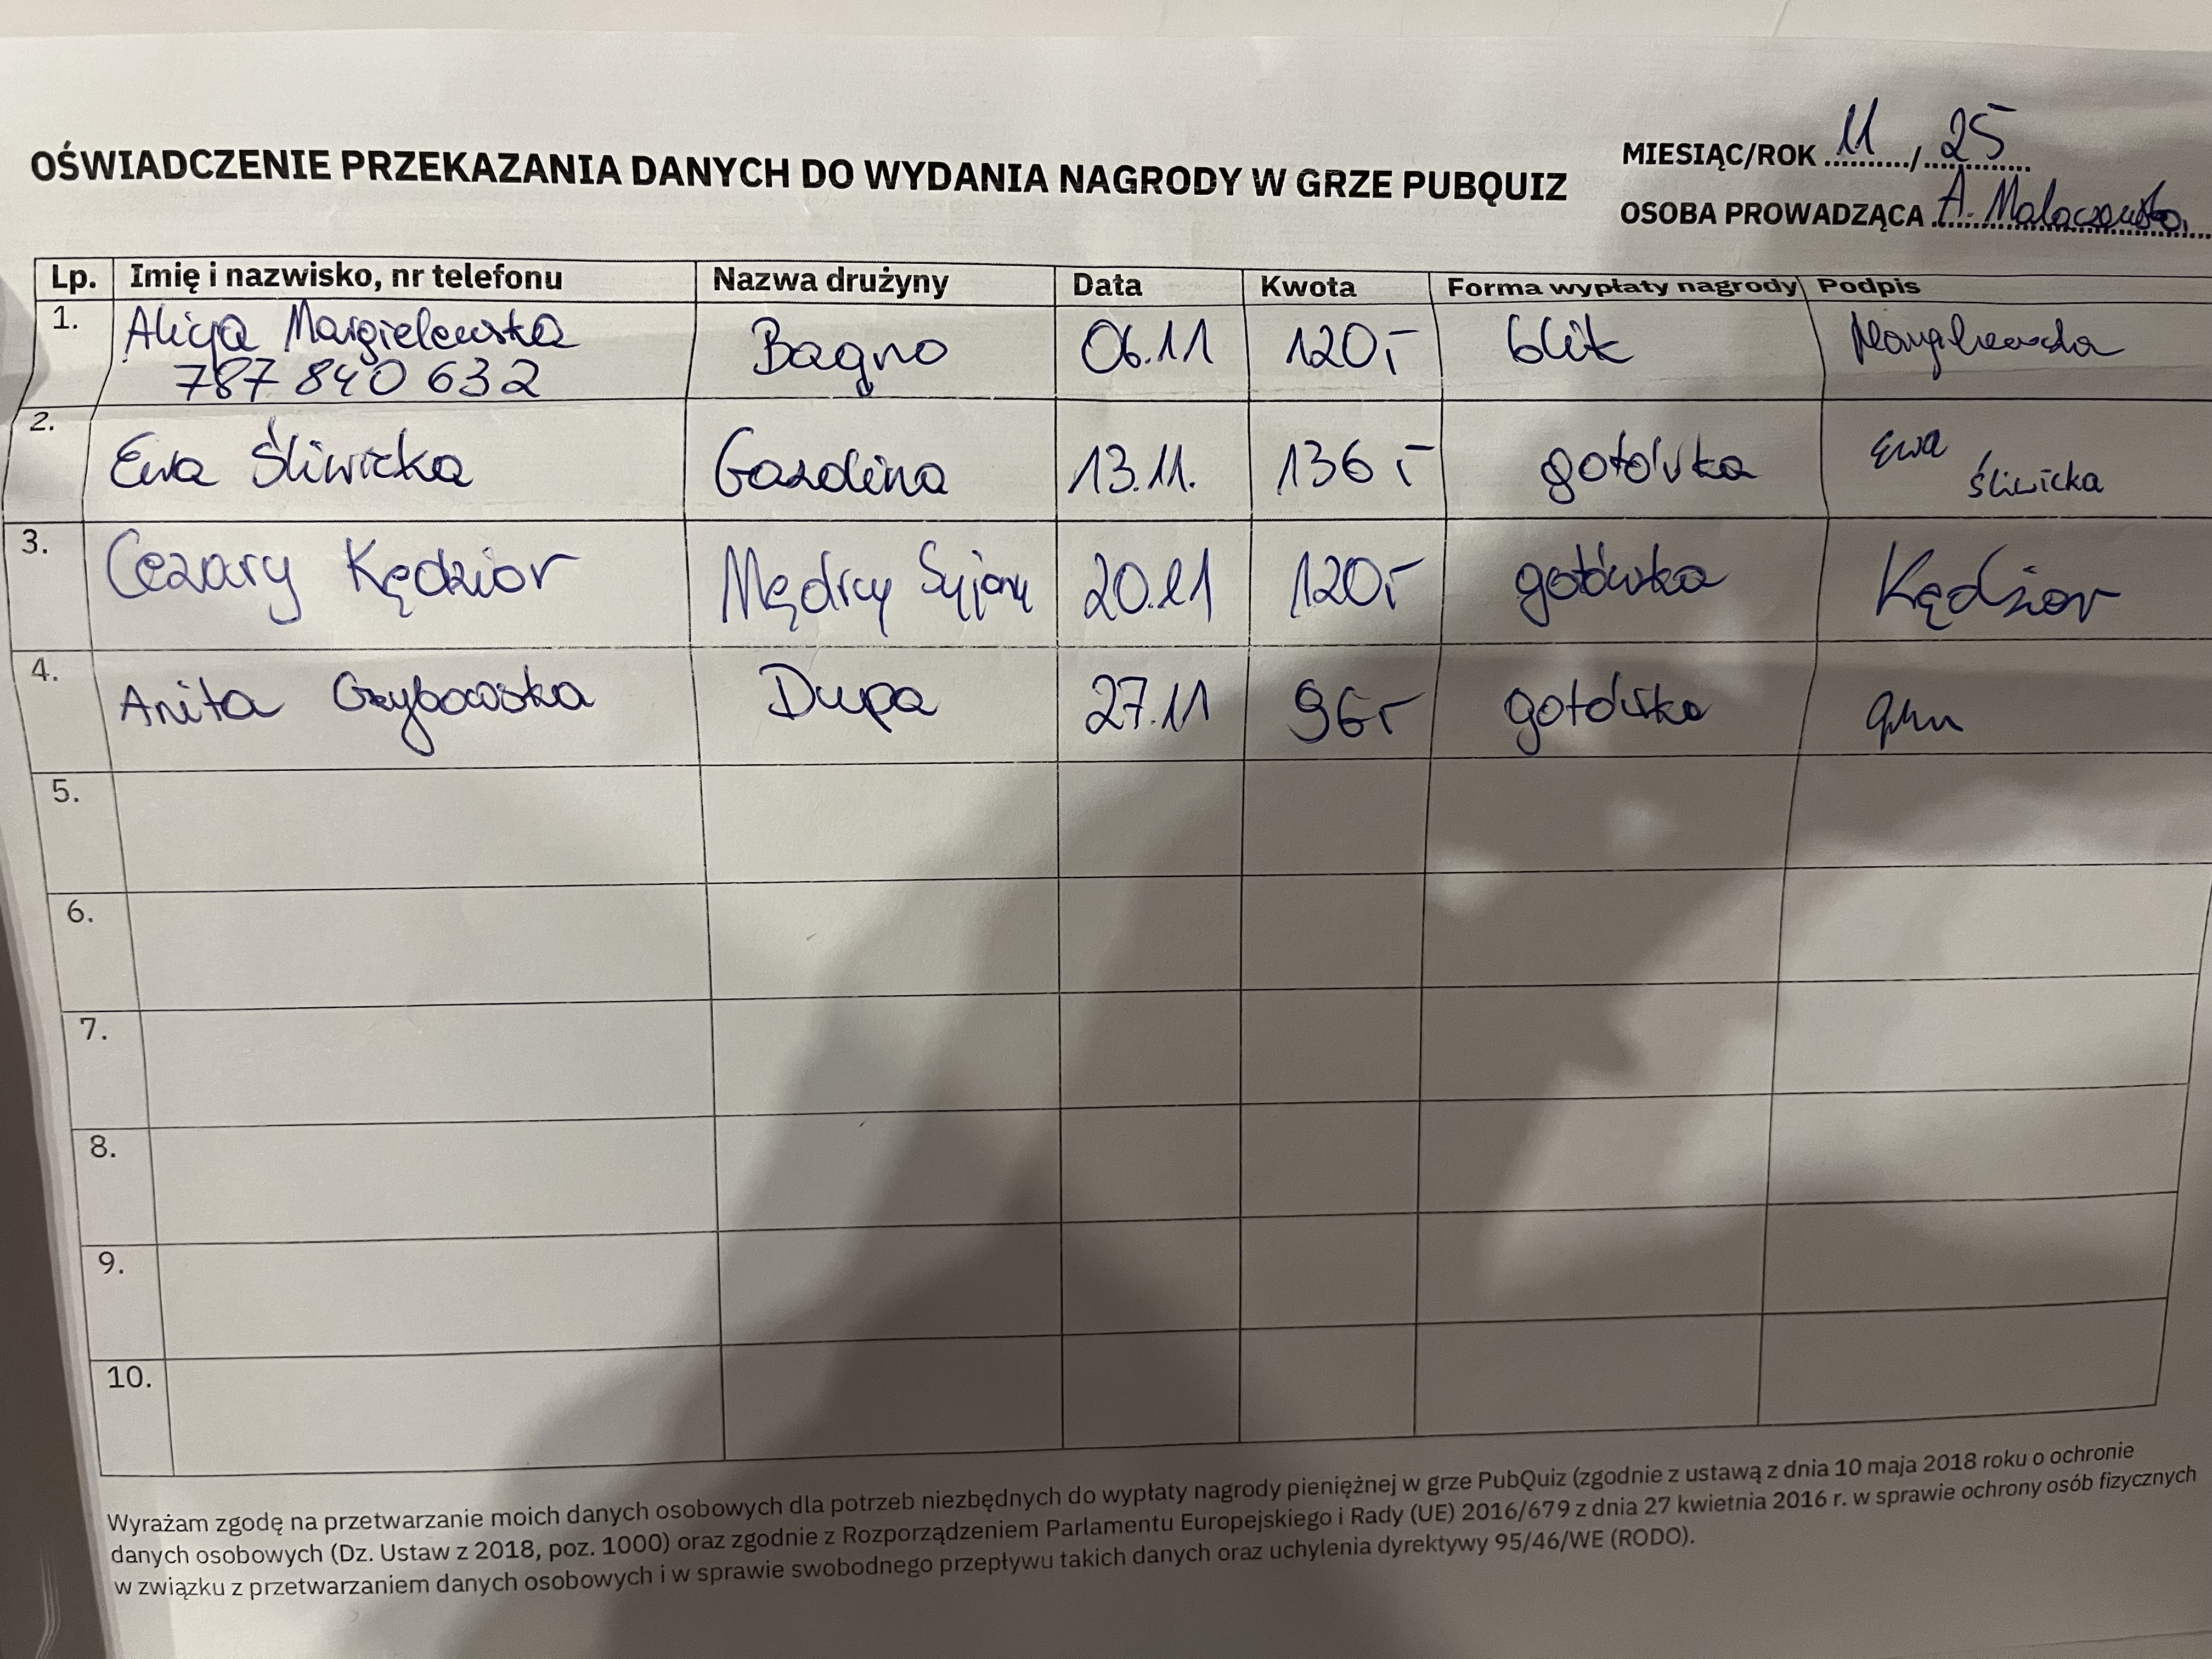 OŚWIADCZENIE PRZEKAZANIA DANYCH DO WYDANIA NAGRODY W GRZE PUBQUIZ
MIESIĄC/ROK 11 / 25
OSOBA PROWADZĄCA A.
Lp. Imię i nazwisko, nr telefonu Nazwa drużyny Data Kwota Forma wypłaty nagrody Podpis
1. Alicja Margielewska Bagno 06.11 120,- blik
787 840 632
2. Ewa Śliwicka Gazdina 13.11. 136,- gotówka Ewa Śliwicka
3. Cezary Kędzior Mędrcy Syjonu 20.11 120,- gotówka Kędzior
4. Anita Grzybowska Dupa 27.11 96,- gotówka
5.
6.
7.
8.
9.
10.
Wyrażam zgodę na przetwarzanie moich danych osobowych dla potrzeb niezbędnych do wypłaty nagrody pieniężnej w grze PubQuiz (zgodnie z ustawą z dnia 10 maja 2018 roku o ochronie
danych osobowych (Dz. Ustaw z 2018, poz. 1000) oraz zgodnie z Rozporządzeniem Parlamentu Europejskiego i Rady (UE) 2016/679 z dnia 27 kwietnia 2016 r. w sprawie ochrony osób fizycznych
w związku z przetwarzaniem danych osobowych i w sprawie swobodnego przepływu takich danych oraz uchylenia dyrektywy 95/46/WE (RODO).